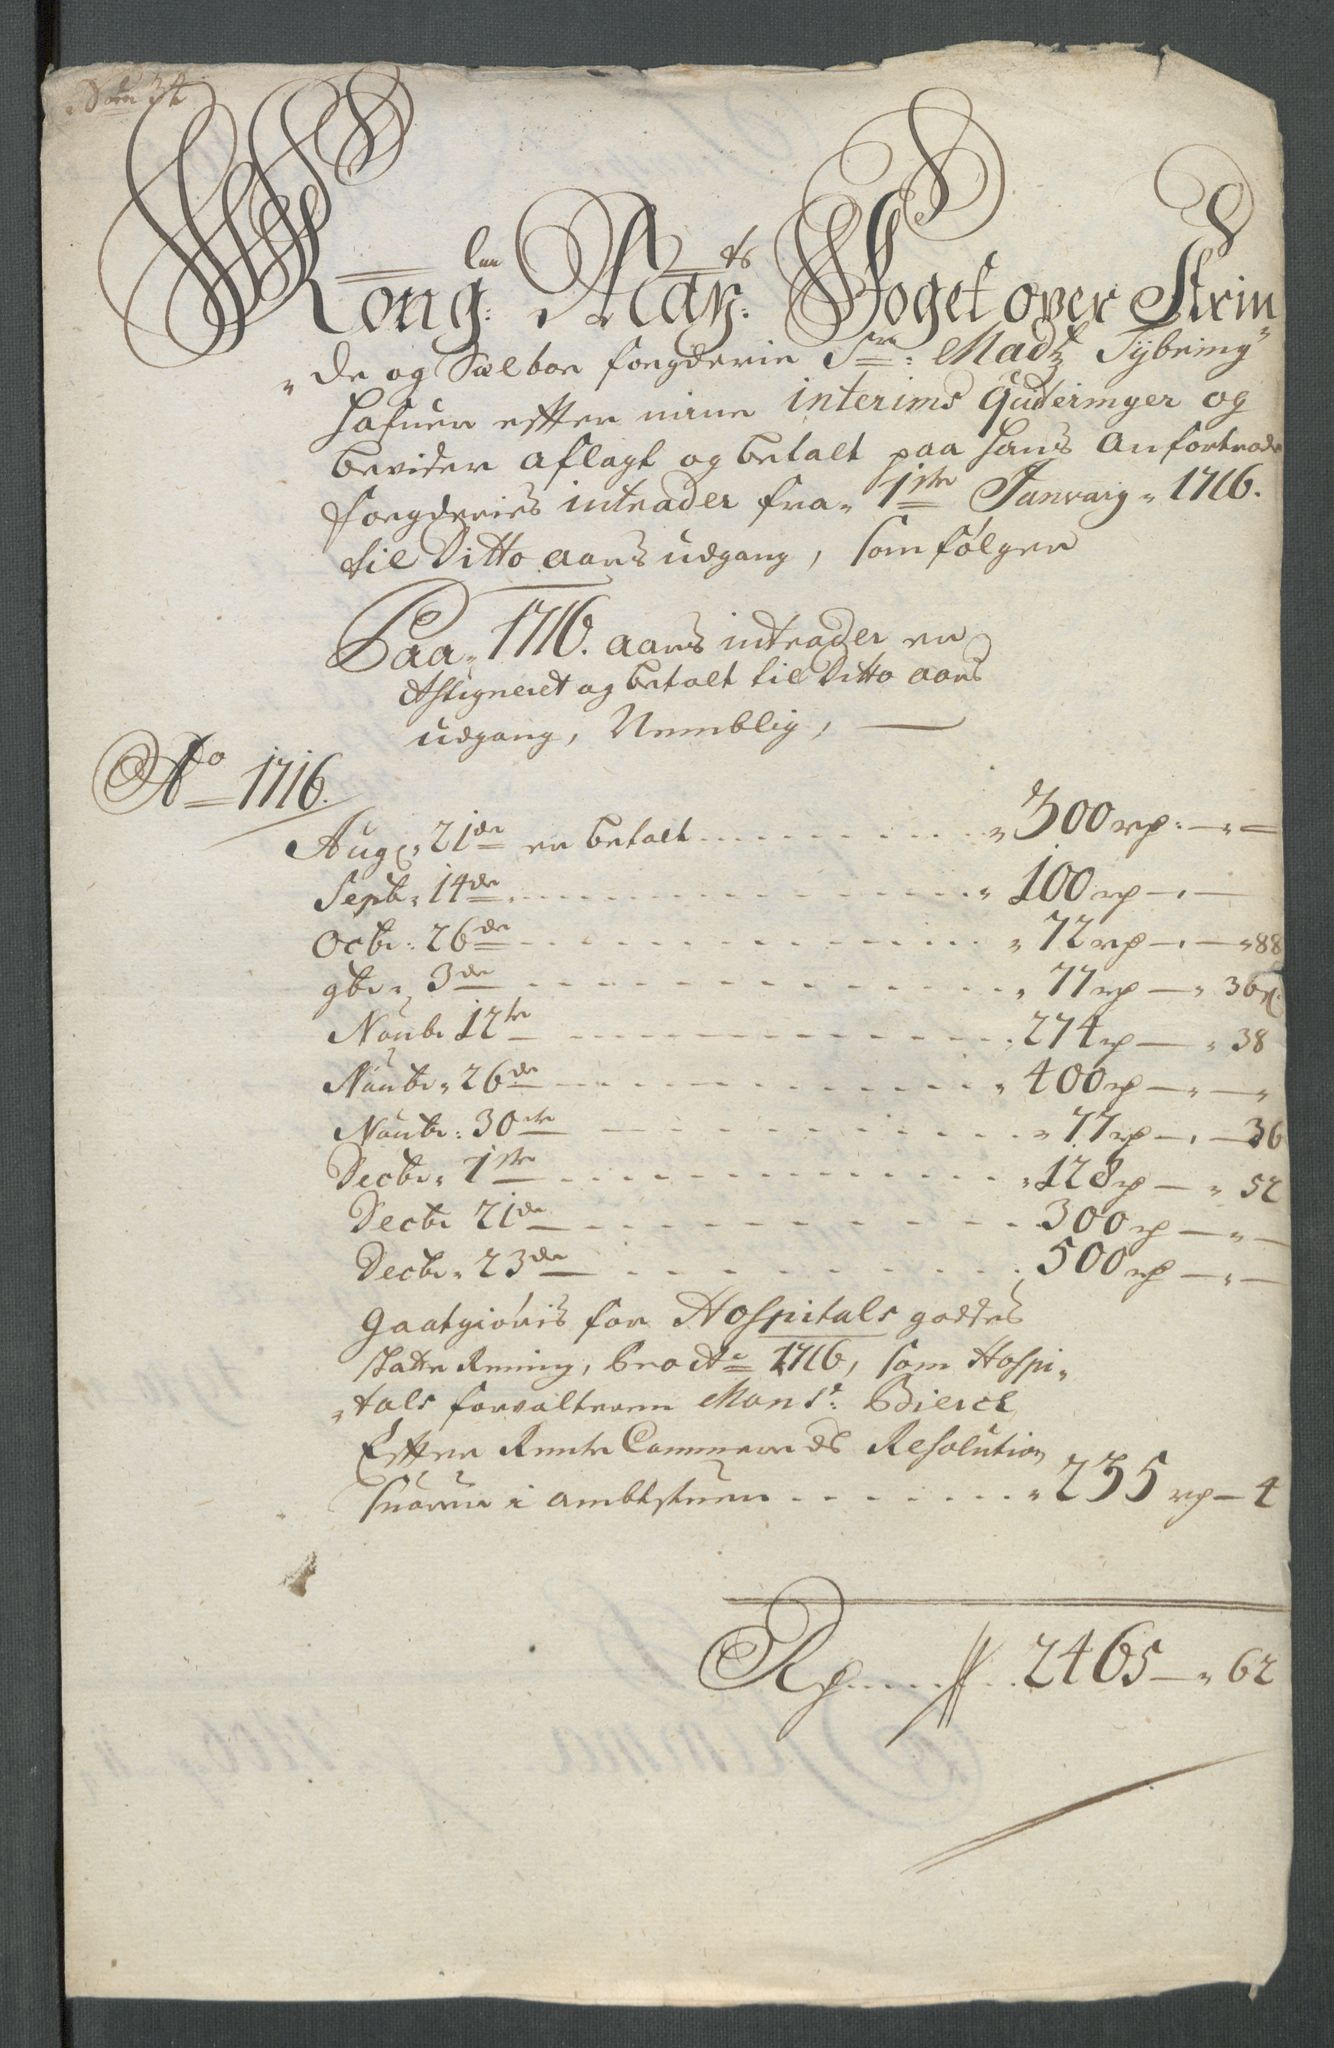 Kong: Maÿ:ts Foget over Strin
de og Sælboe fougderie Sr: Madtz Tÿbring
hafuer effter mine interims Quiteringer og
beviser aflagt og betalt paa hans anfortrode
fougderies intrader fra 1ste Januarij 1716.
til Ditto aars udgang, som følger
Paa 1716. aars intrader er
Assigneret og betalt til Ditto aars
udgang, Nemblig,
Ao 1716.
Aug: 21de er betalt 300 rd:
Septb: 14de 100 rd
Octbr: 26de 72 rd 88
9br: 3de 77 rd 36
Novbr 12te 274 rd 38
Novbr: 26de 400 rd
Novbr: 30te 77 rd 36
Decbr: 1ste 128 rd 52
Decbr 21de 300 rd
Decbr: 23de 500 rd
Hospitals godtzes
1716, som Hospi
tals forvalteren Monsr: Bierch
Effter Rente Cammerens Resolution
i ambtstuen 235 rd 4
Rd 2465 62